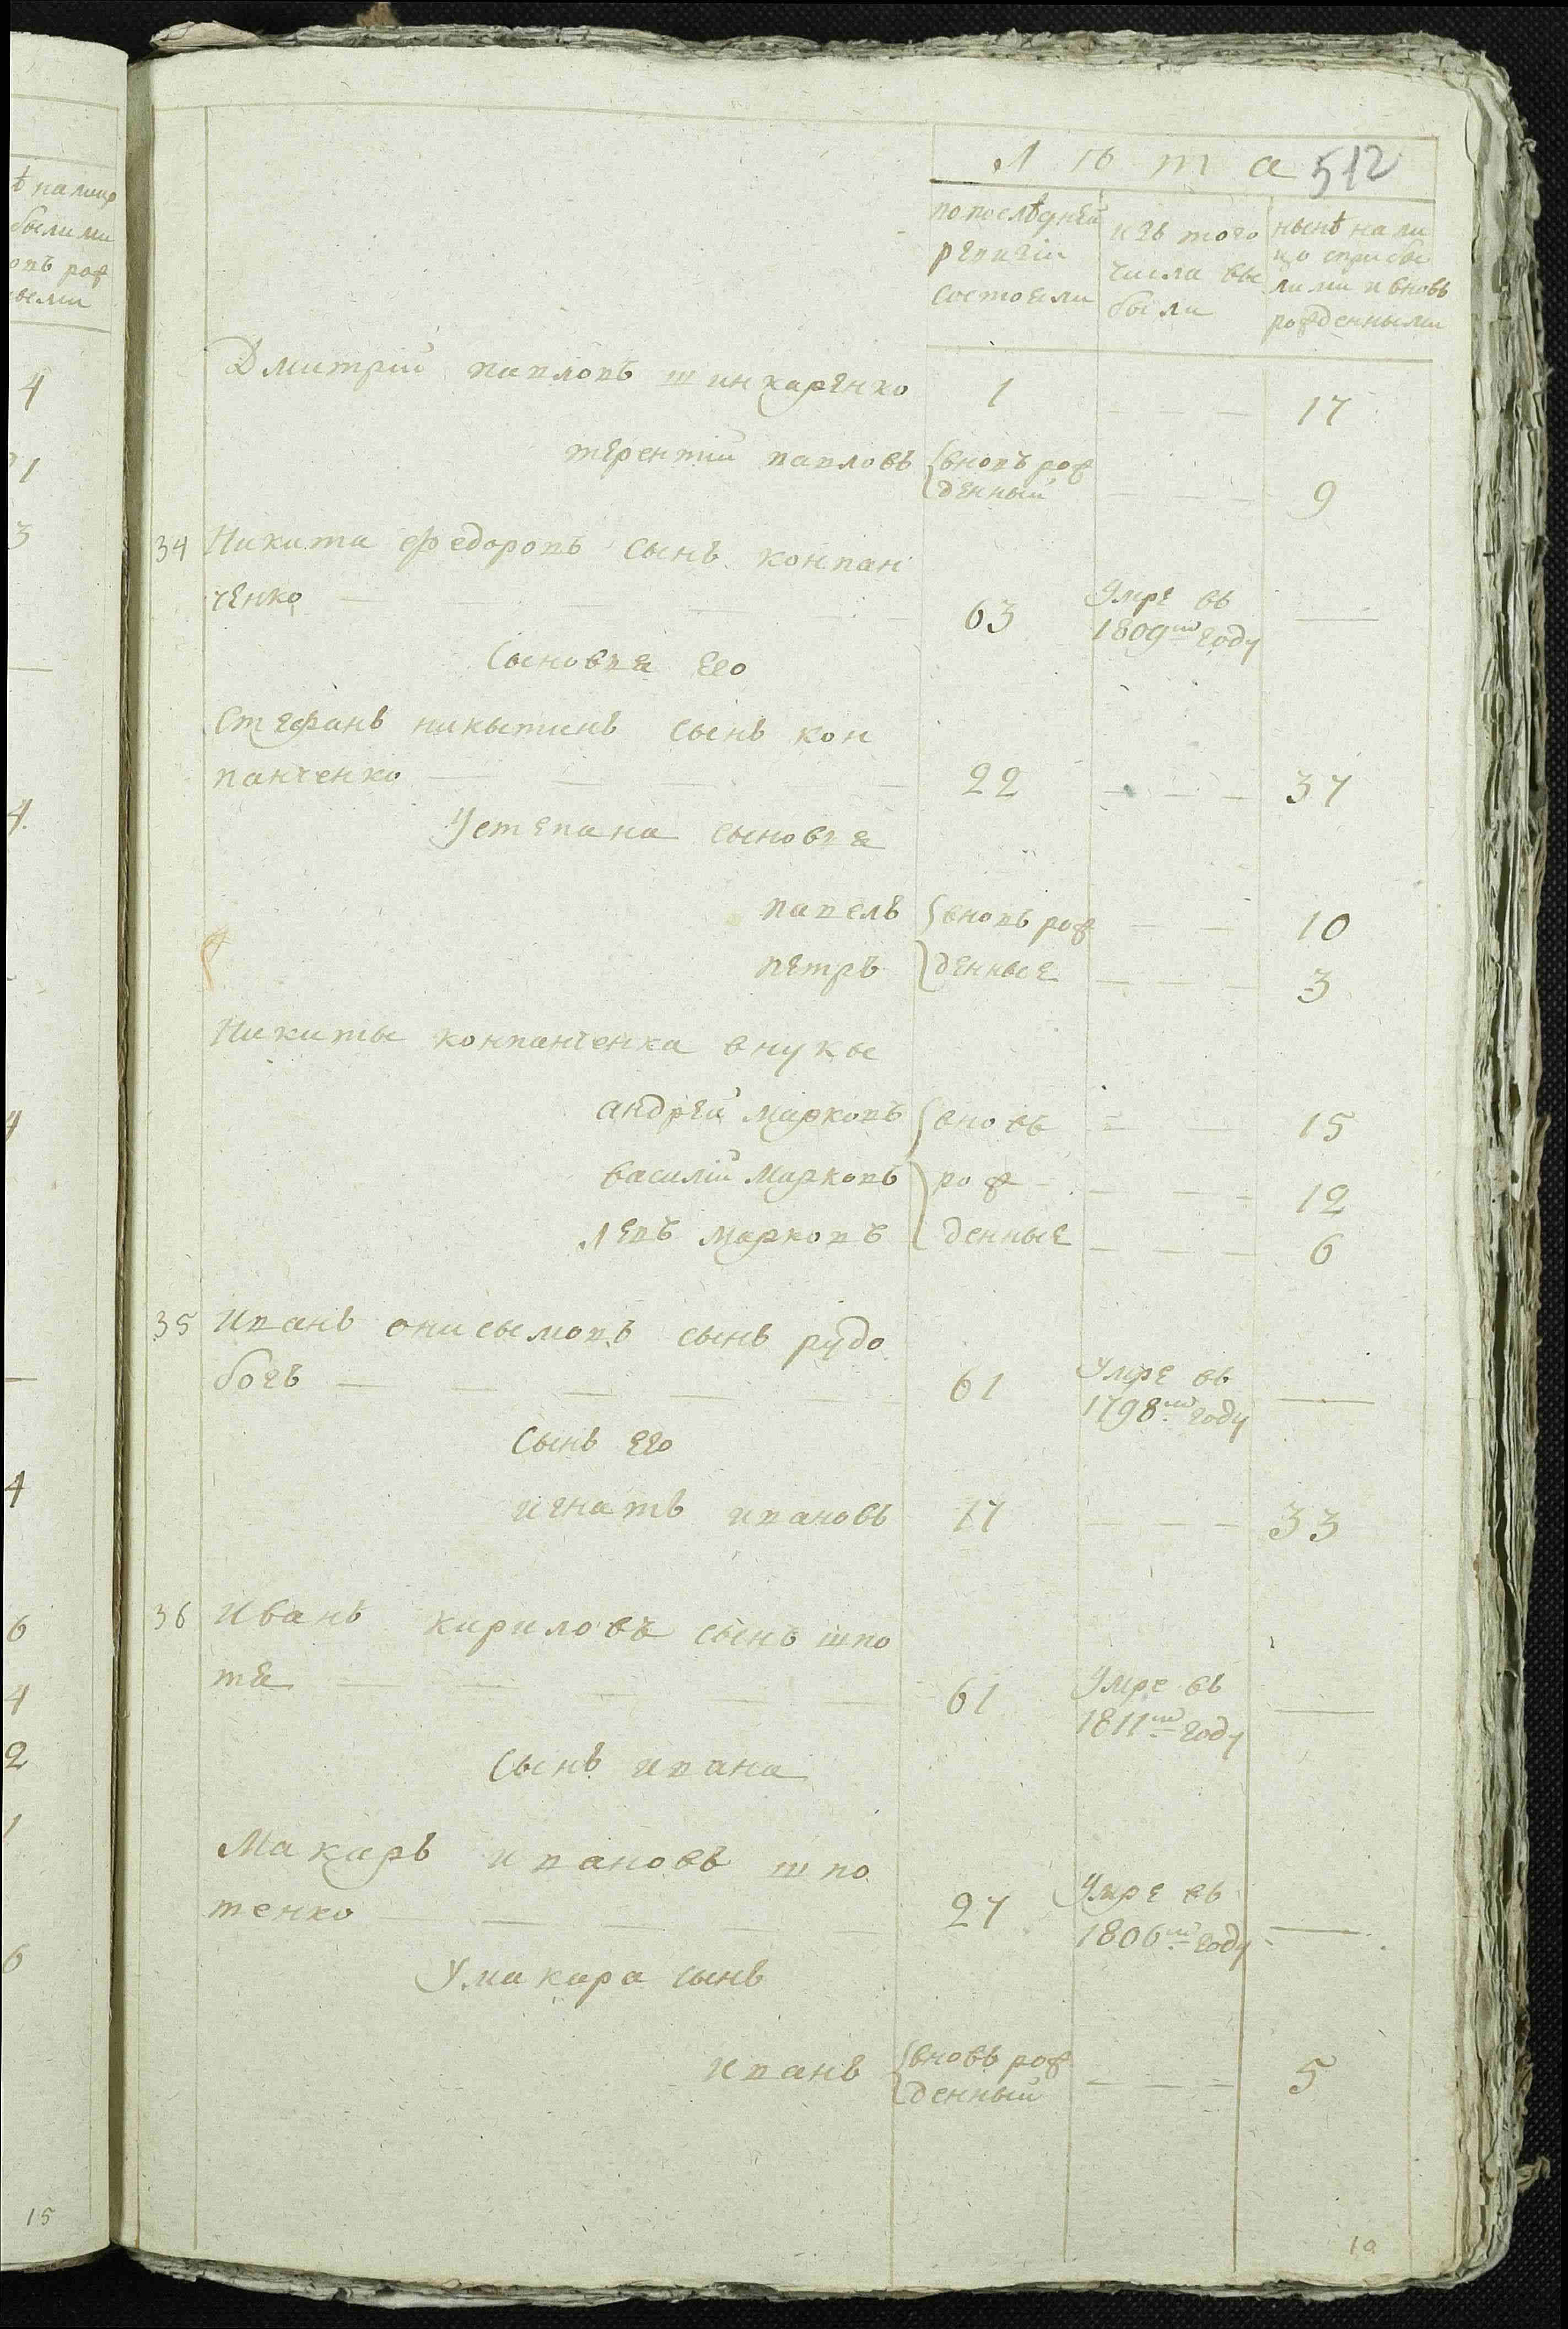 Лѣта 512
по послѣдней ревизіи состояли
изъ того числа выбыли
нынѣ на лицо сприбылыми и вновь рожденными
Дмитрій павловъ шинкаренко 1 — — — 17
терентій павловъ вновь рожденный — — — 9
34 Никита федоровъ сынъ конпан
ченко — — — — — 63 Умре въ 1809м году —
Сыновья его
Стефанъ никытинъ сынъ кон
панченко — — — — 22 — — — 37
У степана сыновья
павелъ вновь рож — — 10
петръ денные — — — 3
Никиты конпанченка внукы
андрей марковъ вновь — — 15
василій марковъ рож — — — 12
левъ марковъ денные — — — 6
35 Иванъ онисымовъ сынъ рудо
богъ — — — — — 61 Умре въ 1798м году —
Сынъ его
игнатъ ивановъ 17 — — — 33
36 Иванъ кириловъ сынъ шпо
та — — — — — 61 Умре въ 1811м году —
Сынъ ивана
Макаръ ивановъ шпо
тенко — — — — 27 Умре въ 1806м году —
У макара сынъ
иванъ вновь рожденный — — — 5